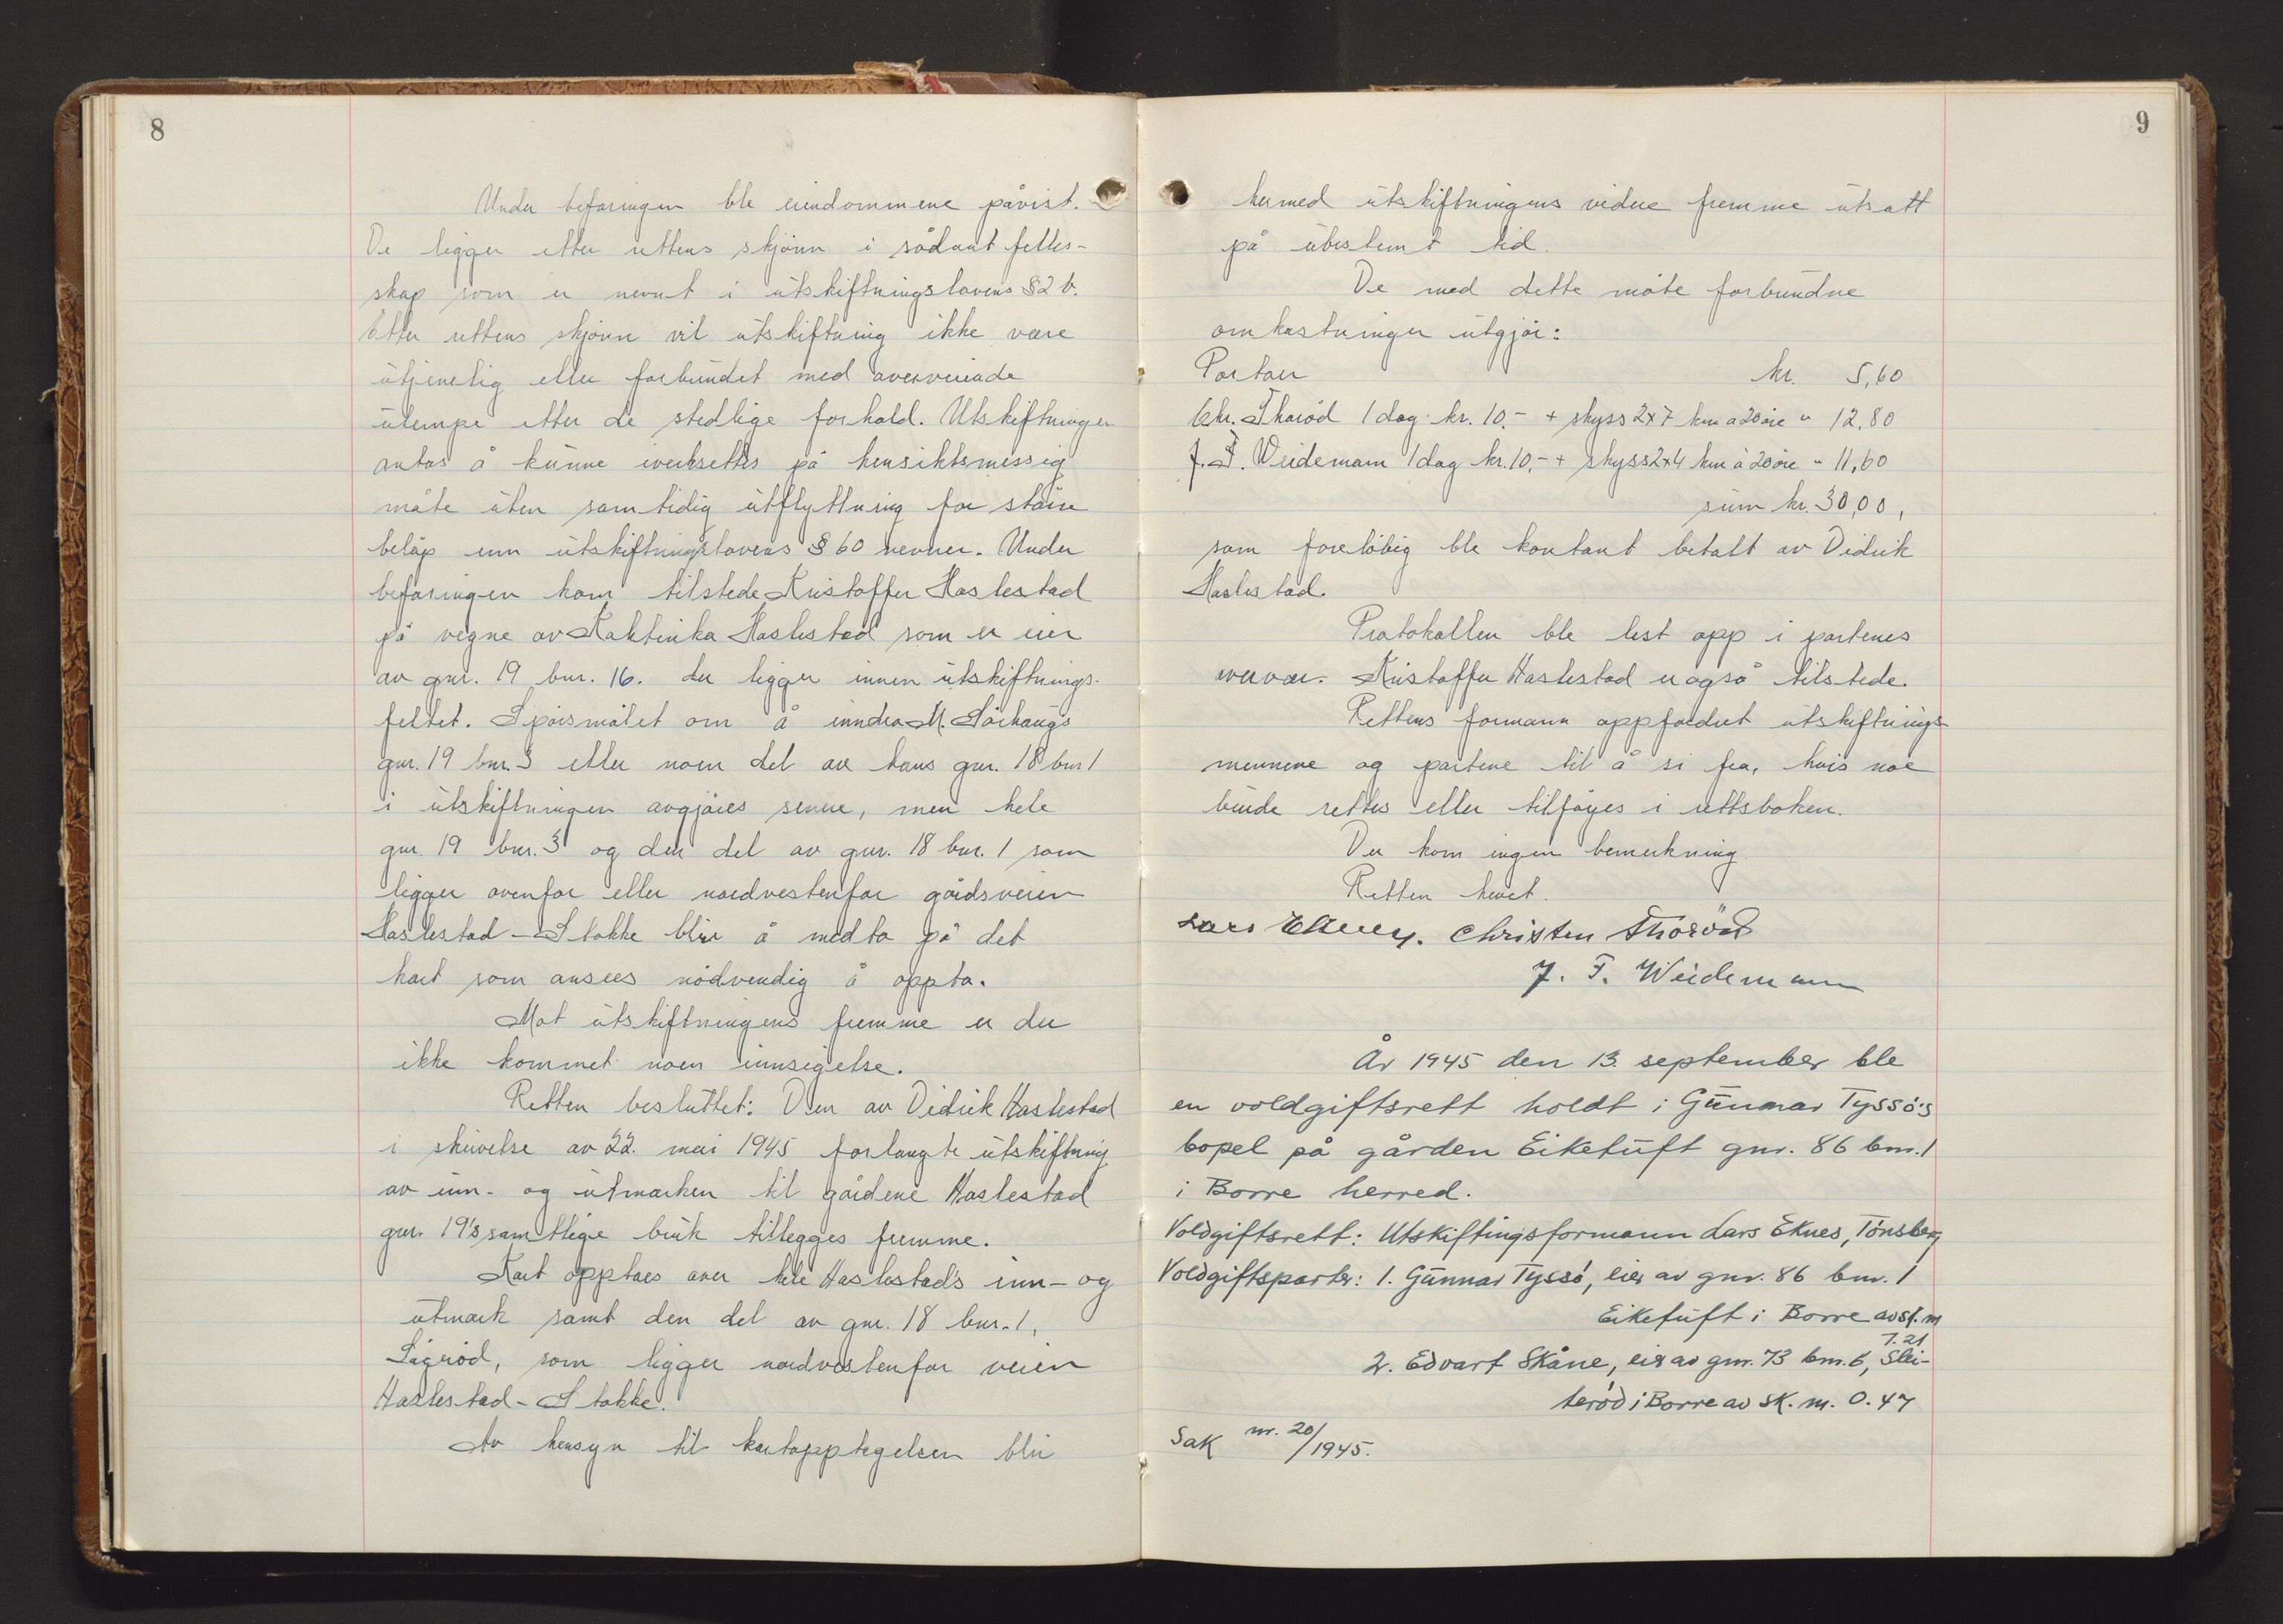 8
Under befaringen ble eiendommene påvist.
De ligger etter rettens skjönn i sådant felles-
skap som er nevnt i utskiftningslovens §2 b.
Etter rettens skjönn vil utskiftning ikke være
utjenelig eller forbundet med overveiende
ulempe etter de stedlige forhold. Utskiftningen
antas å kunne iverksettes på hensiktsmessig
måte uten samtidig utflyttning for större
belöp enn utskiftningslovens § 60 nevner. Under
befaringen kom tilstede Kristoffer Haslestad
på vegne av Haslestad som er eier
av gnr. 19 bnr. 16. der ligger innen utskiftnings-
feltet. Spörsmålet om å inndra M. Sörhaugs
gnr. 19 bnr. 3 eller noen del av hans gnr. 18 bnr 1
i utskiftningen avgjöres senere, men hele
gnr. 19 bnr. 3 og den del av gnr. 18 bnr. 1 som
ligger ovenfor eller nordvestenfor gårdsveien
Haslestad - Stokke blir å medta på det
kart som ansees nödvendig å oppta.
Mot utskiftningens fremme er der
ikke kommet noen innsigelse.
Retten besluttet: Den av Didrik Haslestad
i skrivelse av 22. mai 1945 forlangte utskiftning
av inn- og utmarken til gårdene Haslestad
gnr. 19's samtlige bruk tillegges fremme.
Kart opptaes over hele Haslestad's inn- og
utmark samt den del av gnr. 18 bnr. 1,
som ligger nordvestenfor veien
Haslestad - Stokke.
Av hensyn til kartopptagelsen blir
9
hermed utskiftningens videre fremme utsatt
på ubestemt tid.
De med dette möte forbundne
omkostninger utgjör:
Portoer kr. 5,60
Chr. Thoröd 1 dag kr. 10.- + skyss 2x7 km a 20 öre " 12,80
J. F. Weidemann 1 dag kr. 10,- + skyss 2x4 km à 20 öre " 11,60
sum kr. 30,00,
som forelöbig ble kontant betalt av Didrik
Haslestad.
Protokollen ble lest opp i partenes
nærvær. Kristoffer Haslestad er også tilstede.
Rettens formann oppfordret utskiftnings-
mennene og partene til å si fra, hvis noe
burde rettes eller tilföyes i rettsboken.
Der kom ingen bemerkning.
Retten hevet.
Lars Eknes. Christen Thoröd
J. F. Weidemann
År 1945 den 13. september ble
en voldgiftsrett holdt i Gunnar Tyssö's
bopel på gården Eiketuft gnr. 86 bnr. 1
i Borre herred.
Voldgiftsrett: Utskiftingsformann Lars Eknes, Tönsberg
Voldgiftsparter: 1. Gunnar Tyssö, eier av gnr. 86 bnr. 1
Eiketuft i Borre av sk. m
7.21
2. Edvart Skåne, eier av gnr. 73 bnr. 6, Slei-
teröd i Borre av sk. m. 0.47
Sak nr. 20/1945.